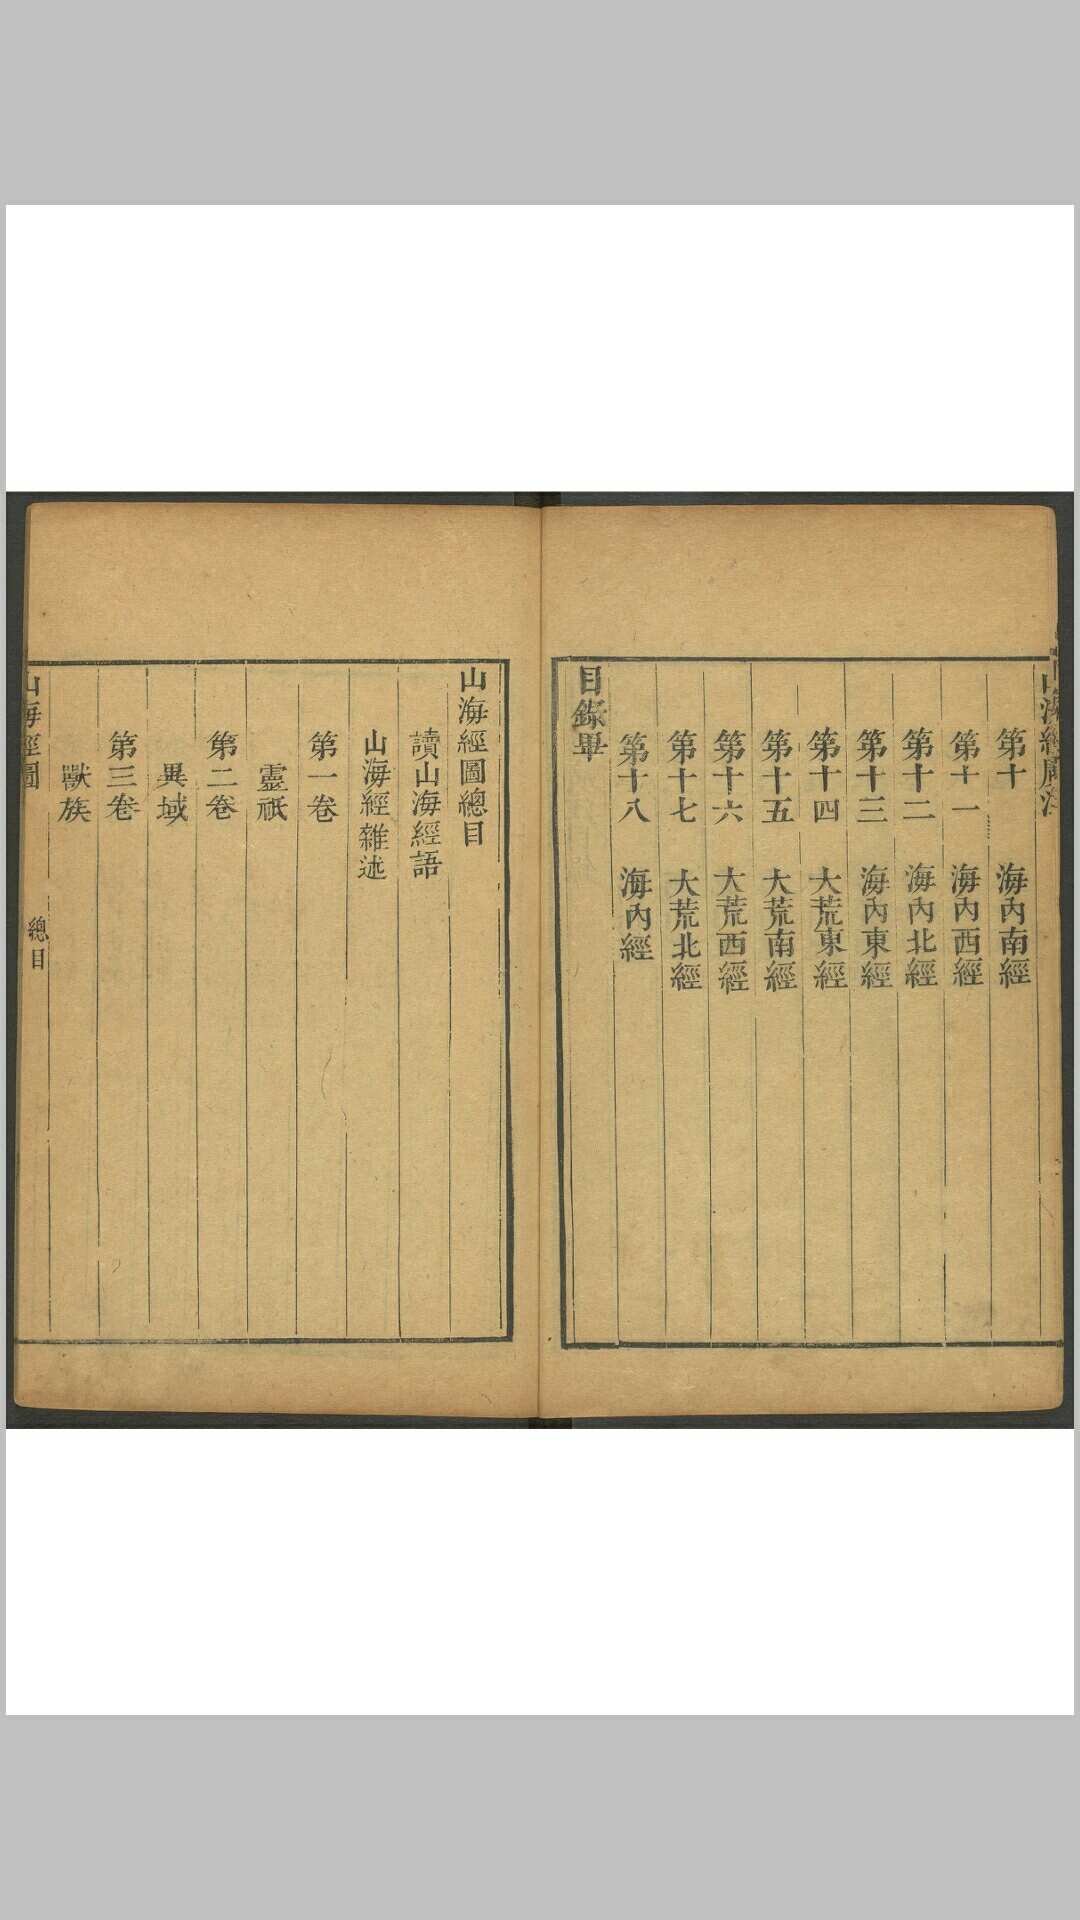 第十 海內南經
第十一 海內西經
第十二 海內北經
第十三 海內東經
第十四 大荒東經
第十五 大荒南經
第十六 大荒西經
第十七 大荒北經
第十八 海內經
目錄畢
山海經圖總目
讀山海經語
山海經雜述
第一卷
靈祇
第二卷
異域
第三卷
獸族
山海經圖 總目